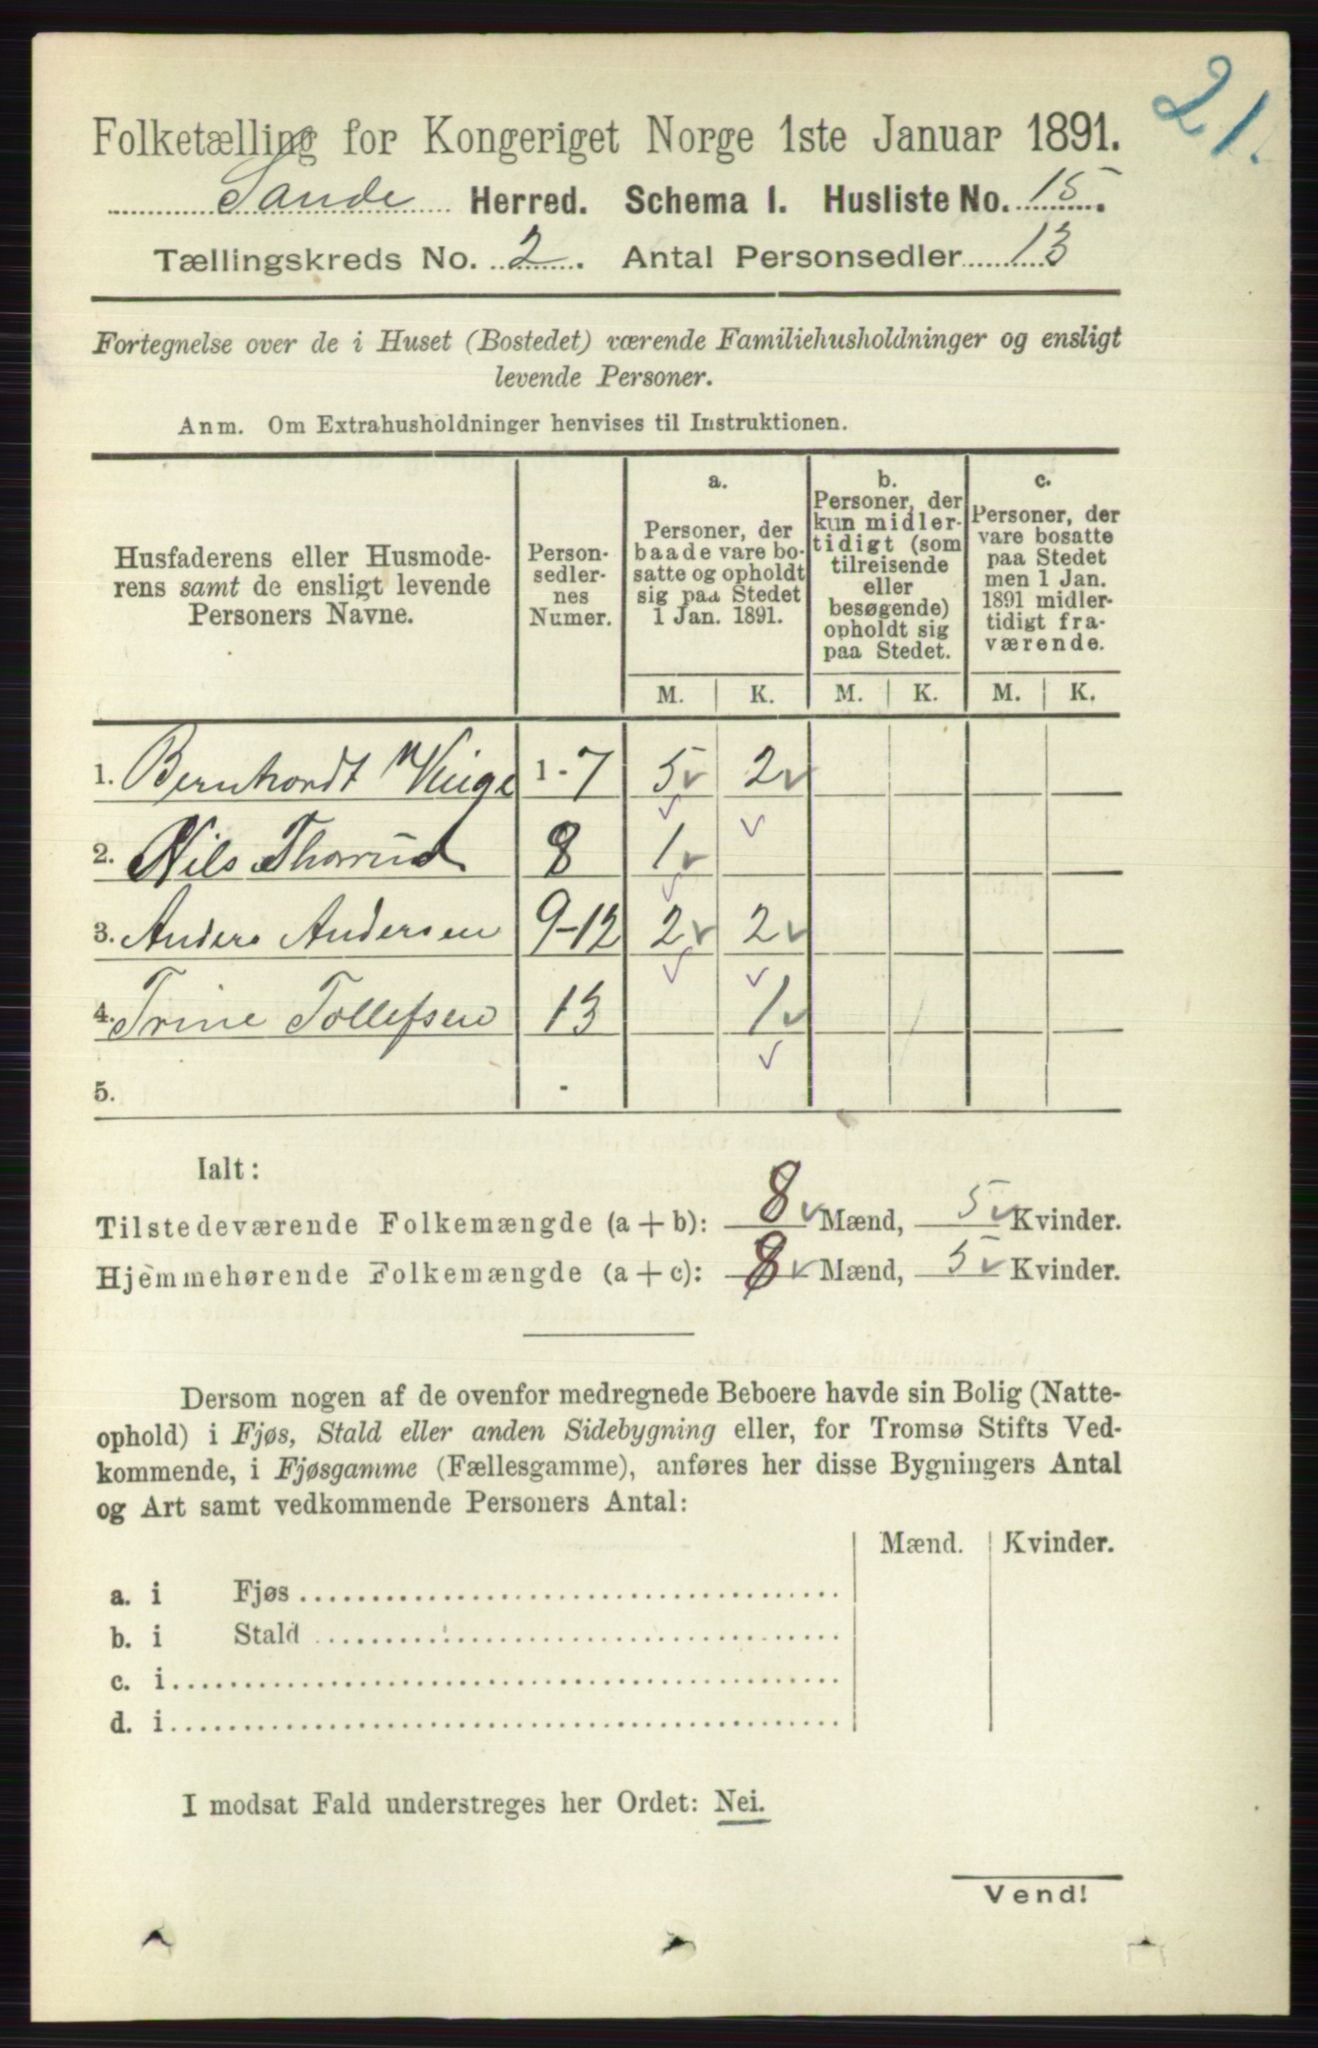 21.
Folketælling for Kongeriget Norge 1ste Januar 1891.
Sande Herred. Schema I. Husliste No. 15.
Tællingskreds No. 2. Antal Personsedler 13
Fortegnelse over de i Huset (Bostedet) værende Familiehusholdninger og ensligt
levende Personer.
Anm. Om Extrahusholdninger henvises til Instruktionen.
Husfaderens eller Husmode-
rens samt de ensligt levende
Personers Navne.
Person-
sedler-
nes
Numer.
a.
Personer, der
baade vare bo-
satte og opholdt
sig paa Stedet
1 Jan. 1891.
b.
Personer, der
kun midler-
tidigt (som
tilreisende
eller
besøgende)
opholdt sig
paa Stedet.
c.
Personer, der
vare bosatte
paa Stedet
men 1 Jan.
1891 midler-
tidigt fra-
værende.
M. K. M. K. M. K.
1. Bernhardt Vinge 1-7 5 v 2 v
2. Nils Thorrud 8 1 v
3. Anders Andersen 9-12 2 v 2 v
4. Trine Tollefsen 13 1 v
5. -
Ialt:
Tilstedeværende Folkemængde (a + b): 8 v Mænd, 5 v Kvinder.
Hjemmehørende Folkemængde (a + c): 8 v Mænd, 5 v Kvinder.
Dersom nogen af de ovenfor medregnede Beboere havde sin Bolig (Natte-
ophold) i Fjøs, Stald eller anden Sidebygning eller, for Tromsø Stifts Ved-
kommende, i Fjøsgamme (Fællesgamme), anføres her disse Bygningers Antal
og Art samt vedkommende Personers Antal:
Mænd. Kvinder.
a. i Fjøs
b. i Stald
c. i
d. i
I modsat Fald understreges her Ordet: Nei.
Vend!